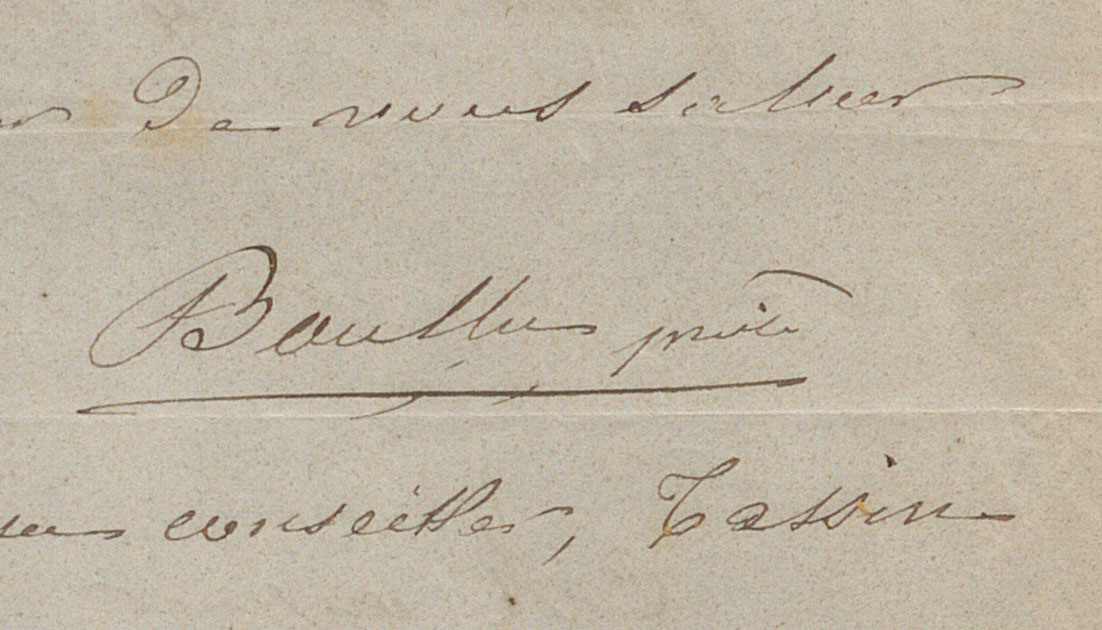 de vous saluer
Boullu prêtre
conseiller, Tassin